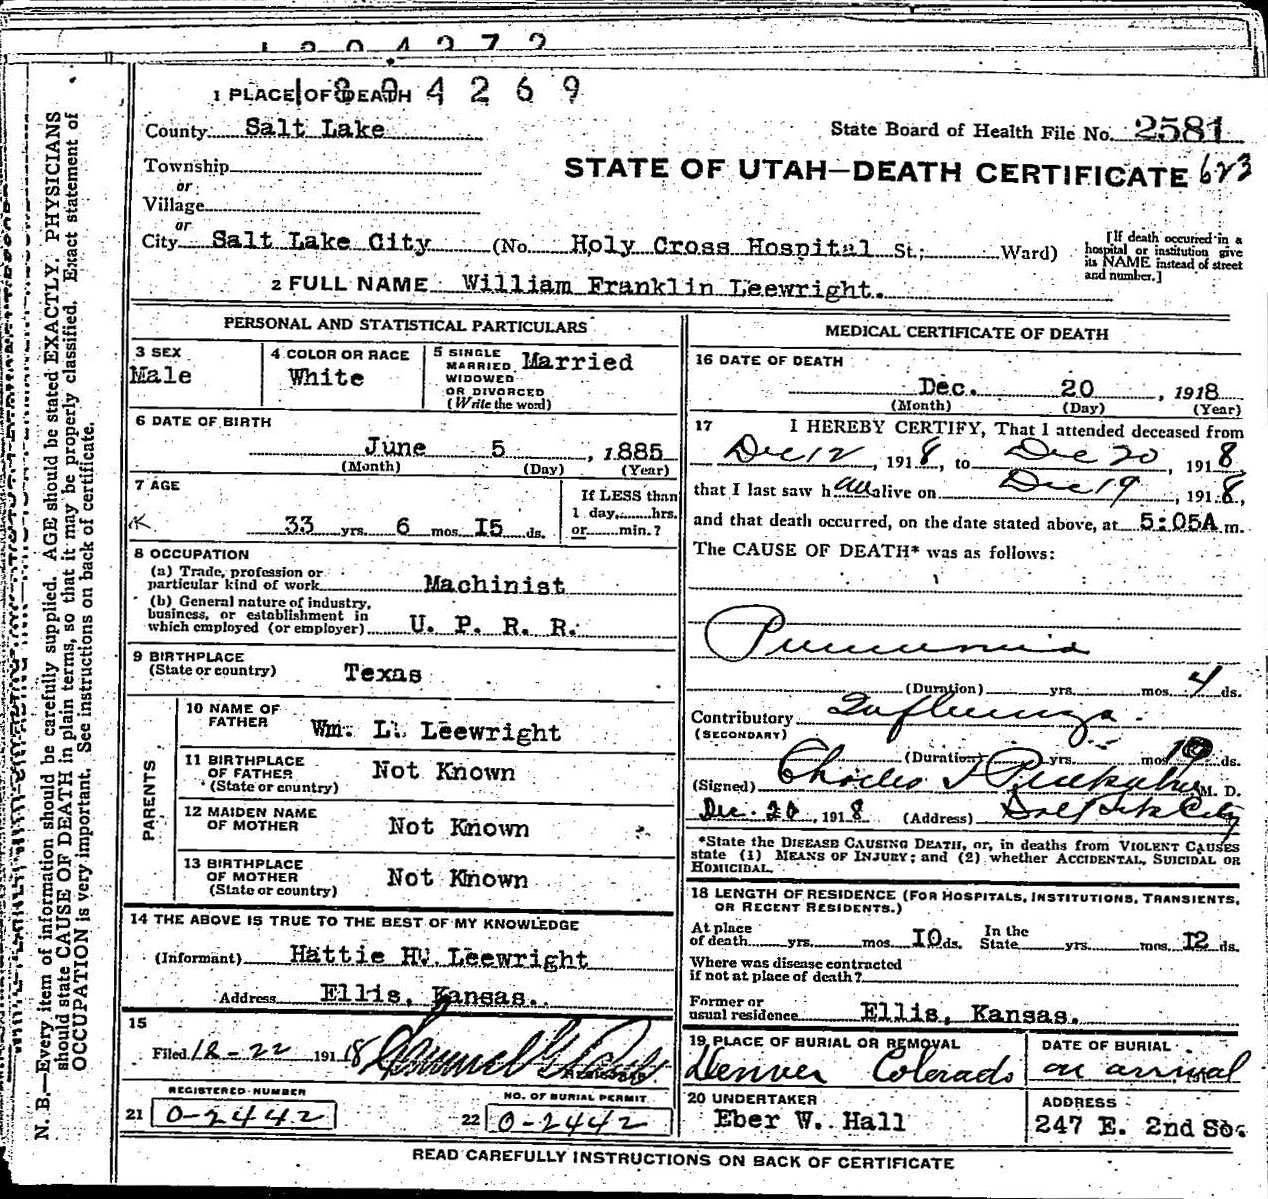 1804269
1 PLACE OF DEATH
County Salt Lake
State Board of Health File No. 2581
Township
or
Village
or
STATE OF UTAH—DEATH CERTIFICATE 623
City Salt Lake City (No. Holy Cross Hospital St.; Ward)
[If death occurred in a
hospital or institution give
its NAME instead of street
and number.]
2 FULL NAME William Franklin Leewright.
PERSONAL AND STATISTICAL PARTICULARS
3 SEX
Male
4 COLOR OR RACE
White
5 SINGLE
MARRIED
WIDOWED
OR DIVORCED
(Write the word)
Married
6 DATE OF BIRTH
June 5, 1885
(Month) (Day) (Year)
7 AGE
33 yrs. 6 mos. I5 ds.
If LESS than
1 day, hrs.
or min.?
8 OCCUPATION
(a) Trade, profession or
particular kind of work Machinist
(b) General nature of industry,
business, or establishment in
which employed (or employer) U. P. R. R.
9 BIRTHPLACE
(State or country) Texas
PARENTS
10 NAME OF
FATHER Wm. L. Leewright
11 BIRTHPLACE
OF FATHER
(State or country) Not Known
12 MAIDEN NAME
OF MOTHER Not Known
13 BIRTHPLACE
OF MOTHER
(State or country) Not Known
14 THE ABOVE IS TRUE TO THE BEST OF MY KNOWLEDGE
(Informant) Hattie H. Leewright
Address Ellis, Kansas.
15
Filed 12-22 1918
REGISTERED NUMBER
21 0-2442
NO. OF BURIAL PERMIT
22 0-2442
MEDICAL CERTIFICATE OF DEATH
16 DATE OF DEATH
Dec. 20, 1918
(Month) (Day) (Year)
17 I HEREBY CERTIFY, That I attended deceased from
Dec 12, 1918, to Dec 20, 1918
that I last saw h alive on Dec 19, 1918,
and that death occurred, on the date stated above, at 5:05A m.
The CAUSE OF DEATH* was as follows:
Pneumonia
(Duration) yrs. mos. 4 ds.
Contributory Influenza
(SECONDARY)
(Duration) yrs. mos. ds.
(Signed) Charles M. D.
Dec. 20, 1918 (Address) Salt Lake City
*State the DISEASE CAUSING DEATH, or, in deaths from VIOLENT CAUSES
state (1) MEANS OF INJURY; and (2) whether ACCIDENTAL, SUICIDAL OR
HOMICIDAL.
18 LENGTH OF RESIDENCE (FOR HOSPITALS, INSTITUTIONS, TRANSIENTS,
OR RECENT RESIDENTS.)
At place
of death yrs. mos. I0 ds.
In the
State yrs. mos. I2 ds.
Where was disease contracted
if not at place of death?
Former or
usual residence Ellis, Kansas.
19 PLACE OF BURIAL OR REMOVAL
Denver Colorado
DATE OF BURIAL
on arrival
20 UNDERTAKER
Eber W. Hall
ADDRESS
247 E. 2nd So.
READ CAREFULLY INSTRUCTIONS ON BACK OF CERTIFICATE
N. B.—Every item of information should be carefully supplied. AGE should be stated EXACTLY. PHYSICIANS
should state CAUSE OF DEATH in plain terms, so that it may be properly classified. Exact statement of
OCCUPATION is very important. See instructions on back of certificate.